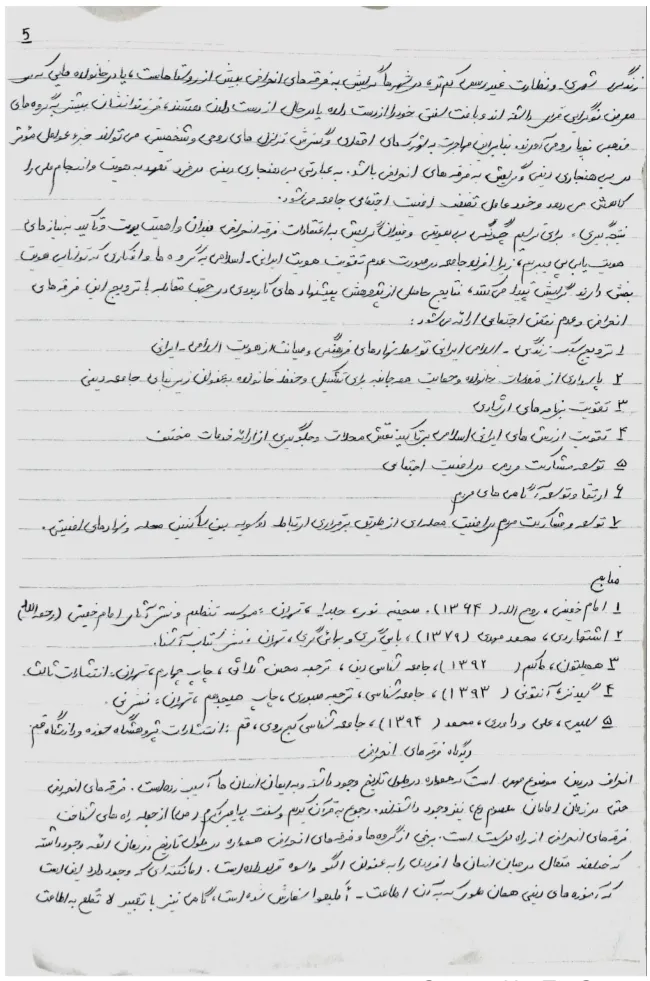 5
زندگی شهری و نظارت غیر رسمی کمتر، در شهرها گرایش به فرقه های انحرافی بیش از روستاهاست، یا در خانواده هایی که در
معرض نوگرایی قرار داشته اند و بافت سنتی خود را از دست داده یا در حال از دست دادن هستند، فرزندانشان بیشتر به گروه های
مذهبی نوپا روی می آورند. بنابراین مهاجرت به شهرک های اقماری و گسترش تزلزل های روحی و شخصیتی می تواند جزء عوامل مؤثر
در بی هنجاری دینی و گرایش به فرقه های انحرافی باشد. به عبارتی بی هنجاری دینی در فرد تعهد به هویت و انسجام ملی را
کاهش می دهد و خود عامل تضعیف امنیت اجتماعی جامعه می شود.
نتیجه گیری: برای ترسیم چگونگی بی هویتی و میزان گرایش به اعتقادات فرقه انحرافی میزان واهمیت هویت و تأکید به نیازهای
هویت یابی پی میبریم، زیرا افراد جامعه در صورت عدم تقویت هویت ایرانی - اسلامی به گروه ها و افکاری که توانایی هویت
بخشی دارند گرایش پیدا می کنند، نتایج حاصل از پژوهش پیشنهادهای کاربردی در جهت مقابله با ترویج این فرقه های
انحرافی و عدم نقض اجتماعی ارائه می شود:
1 ترویج سبک زندگی - اسلامی ایرانی توسط نهادهای فرهنگی و صیانت از هویت اسلامی - ایرانی
2 پاسداری از مقدسات خانواده و حمایت همه جانبه برای تشکیل و حفظ خانواده به عنوان زیربنای جامعه دینی
3 تقویت برنامه های ارشادی
4 تقویت ارزش های ایرانی اسلامی بر تأکید نقش محلات و جلوگیری از ارائه خدمات مختلف
5 توسعه مشارکت مردمی در امنیت اجتماعی
6 ارتقا و توسعه آگاهی های مردم
7 توسعه و مشارکت مردم در امنیت محله ای از طریق برقراری ارتباط دو سویه بین ساکنین محله و نهادهای امنیتی.
منابع
1 امام خمینی، روح الله (1394). صحیفه نور، جلد1، تهران: موسسه تنظیم و نشر آثار امام خمینی (رحمه الله)
2 اشتهاردی، محمد مهدی (1379)، بابی گری و بهائی گری، تهران: نشر کتاب آشنا.
3 همیلتون، ملکم (1392)، جامعه شناسی دین، ترجمه محسن ثلاثی، چاپ چهارم، تهران: انتشارات ثالث.
4 گیدنز، آنتونی (1393)، جامعه شناسی، ترجمه صبوری، چاپ هیجدهم، تهران: نشر نی.
5 سلیمی، علی و داوری، محمد (1394)، جامعه شناسی کجروی، قم: انتشارات پژوهشگاه حوزه و دانشگاه قم
دیدگاه فرقه های انحرافی
انحراف در دین موضوع مهمی است که همواره در طول تاریخ وجود داشته و به ایمان انسان ها آسیب زده است. فرقه های انحرافی
حتی در زمان امامان معصوم (ع) نیز وجود داشتند. رجوع به قرآن کریم و سنت پیامبر اکرم (ص) از جمله راه های شناخت
فرقه های انحرافی از راه درست است. برخی از گروه ها و فرقه های انحرافی همواره در طول تاریخ در زمان ائمه وجود داشته
که خداوند متعال در میان انسان ها افرادی را به عنوان الگو و اسوه قرار داده است. اما نکته ای که وجود دارد این است
که آموزه های دینی همان طور که به آن اطاعت - أطیعوا سفارش شده است، گاهی نیز با تعبیر لا تطع به اطاعت